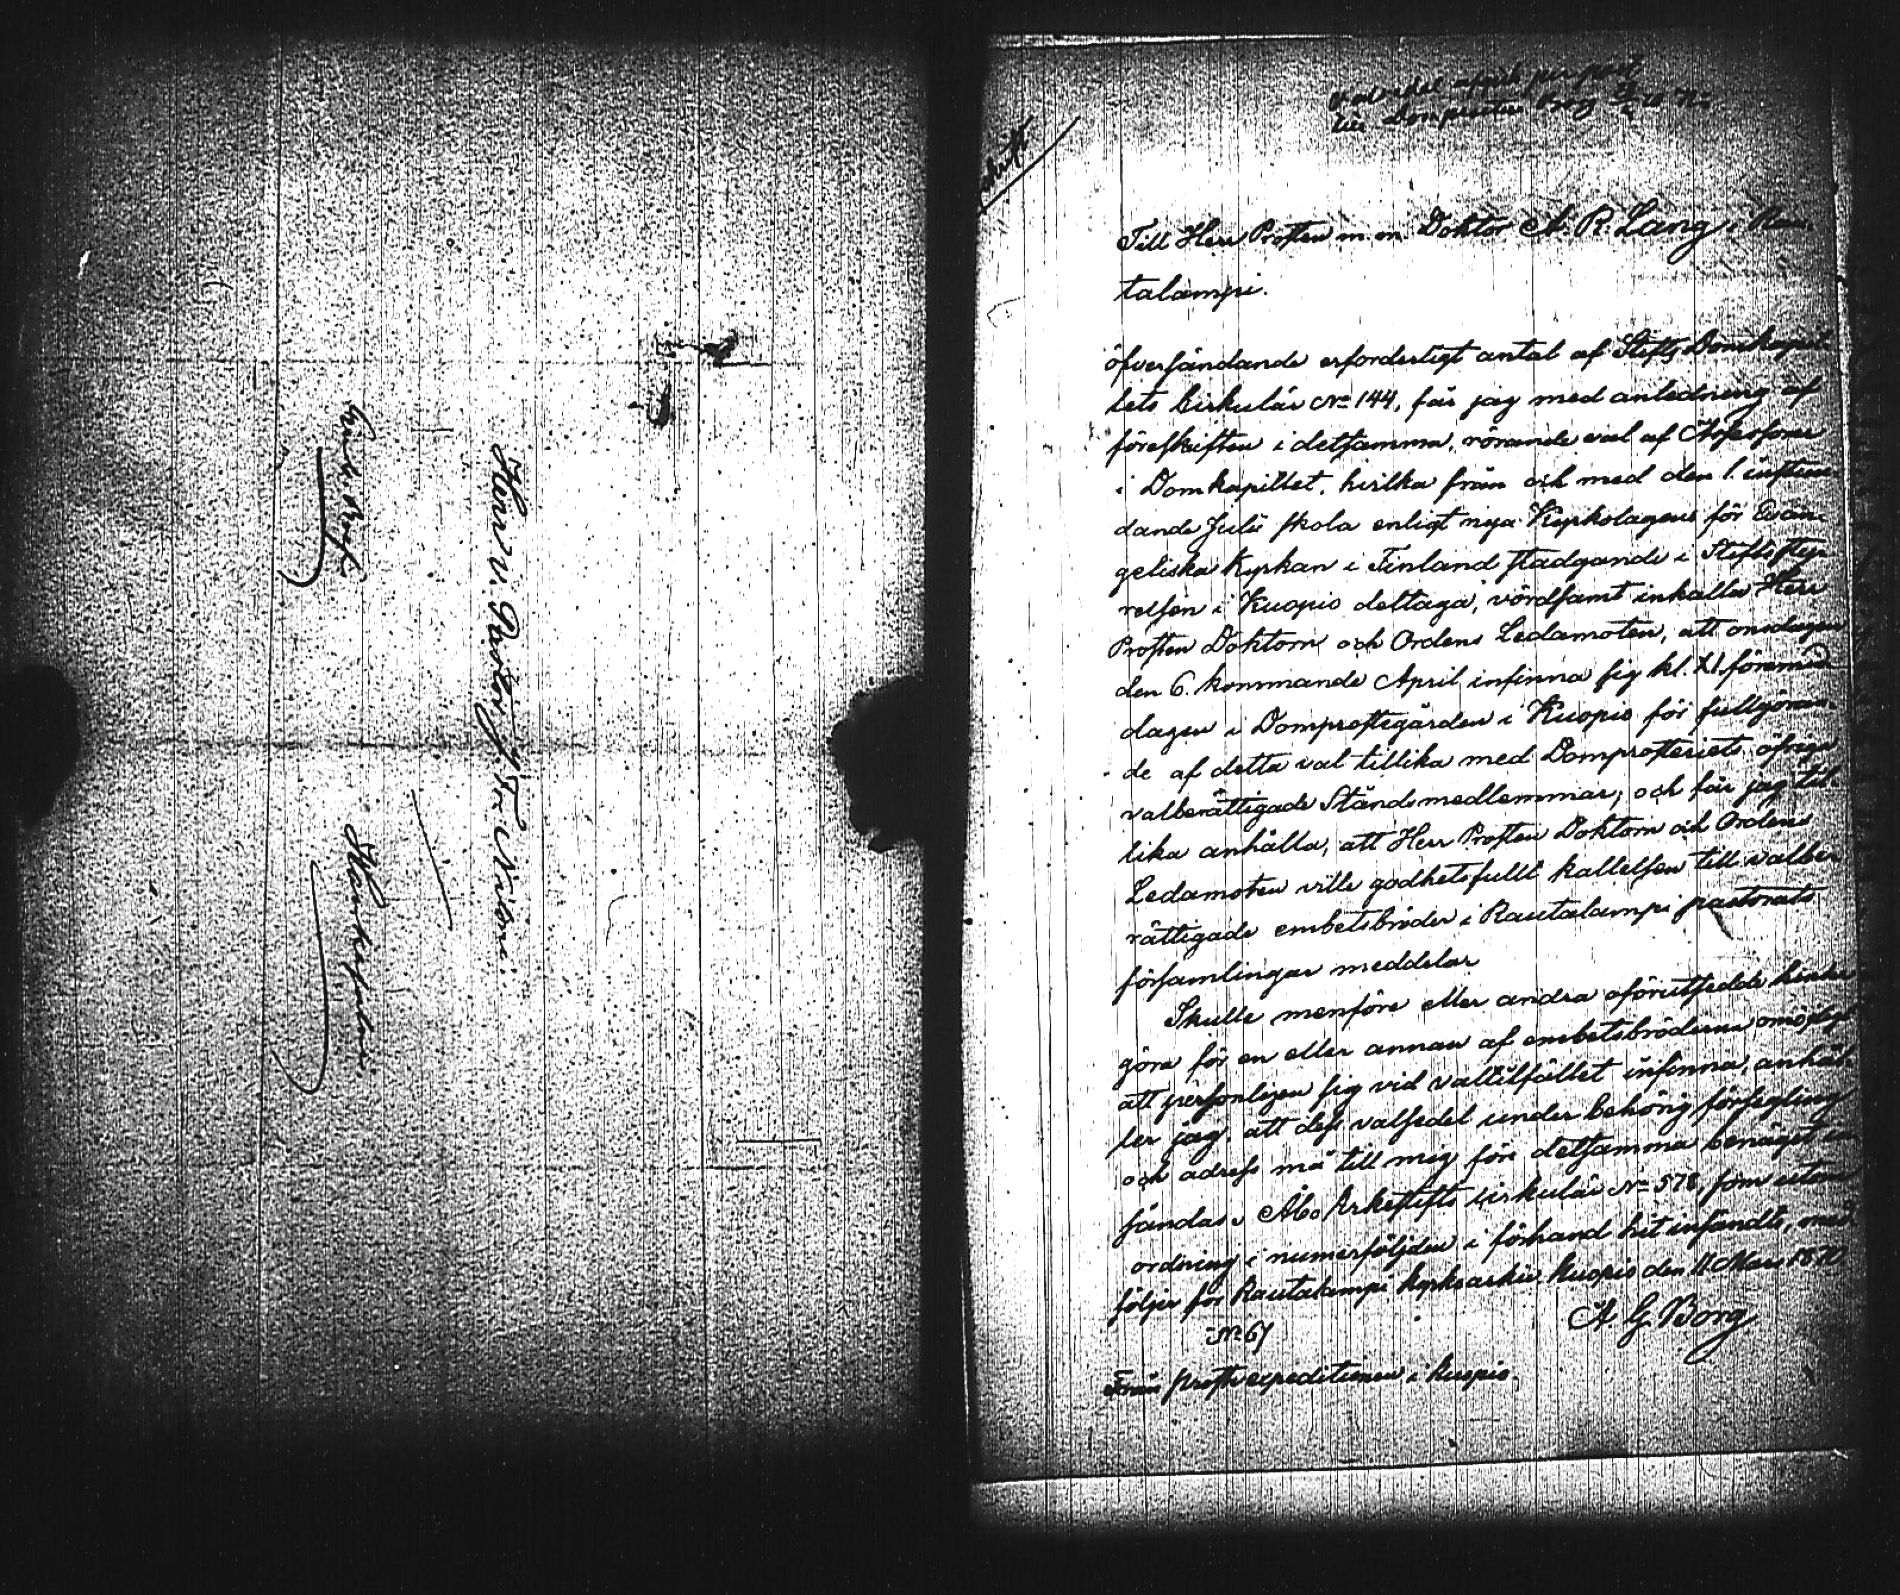 Herr v. Pastor J. Fr.
Hankasalmi.
Valsedel afsänd per post
till Domprosten Borg
Till Herr Prosten m. m. Doktor A. R. Lang i Rau-
talampi.
öfversändande erforderligt antal af Stifts Domkapit-
lets Cirkulär No 144, får jag med anledning af
föreskriften i detsamma, rörande val af Assessorer
i Domkapitlet, hvilka från och med den 1. instun-
dande Julii skola enligt nya Kyrkolagens för Evan-
geliska Kyrkan i Finland stadgande i Stiftssty-
relsen i Kuopio deltaga, vördsamt inkalla Herr
Prosten Doktorn och Ordens Ledamoten, att onsdagen
den 6. kommande April infinna sig kl. XI förmid-
dagen i Domprostegården i Kuopio för fullgöran-
de af detta val tillika med Domprosteriets öfriga
valberättigade Ståndsmedlemmar; och får jag til-
lika anhålla, att Herr Prosten Doktorn och Ordens
Ledamoten ville godhetsfullt kallelsen till valbe-
rättigade embetsbröder i Rautalampi pastorats
församlingar meddelar
Skulle menföre eller andra oförutsedde hinder
göra för en eller annan af embetsbröderna omöjligt
att personligen sig vid valtillfället infinna, anhål-
ler jag, att dess valsedel under behörig försegling
och adress må till mig före detsamma benäget in-
sändas. Åbo Erkestifts Cirkulär No 578, som utom
ordning i numerföljden i förhand hit insändts, med-
följer för Rautalampi kyrkoarkiv. Kuopio den 11 Mars 1870
A G Borg
No 67
Från prostexpeditionen i Kuopio.